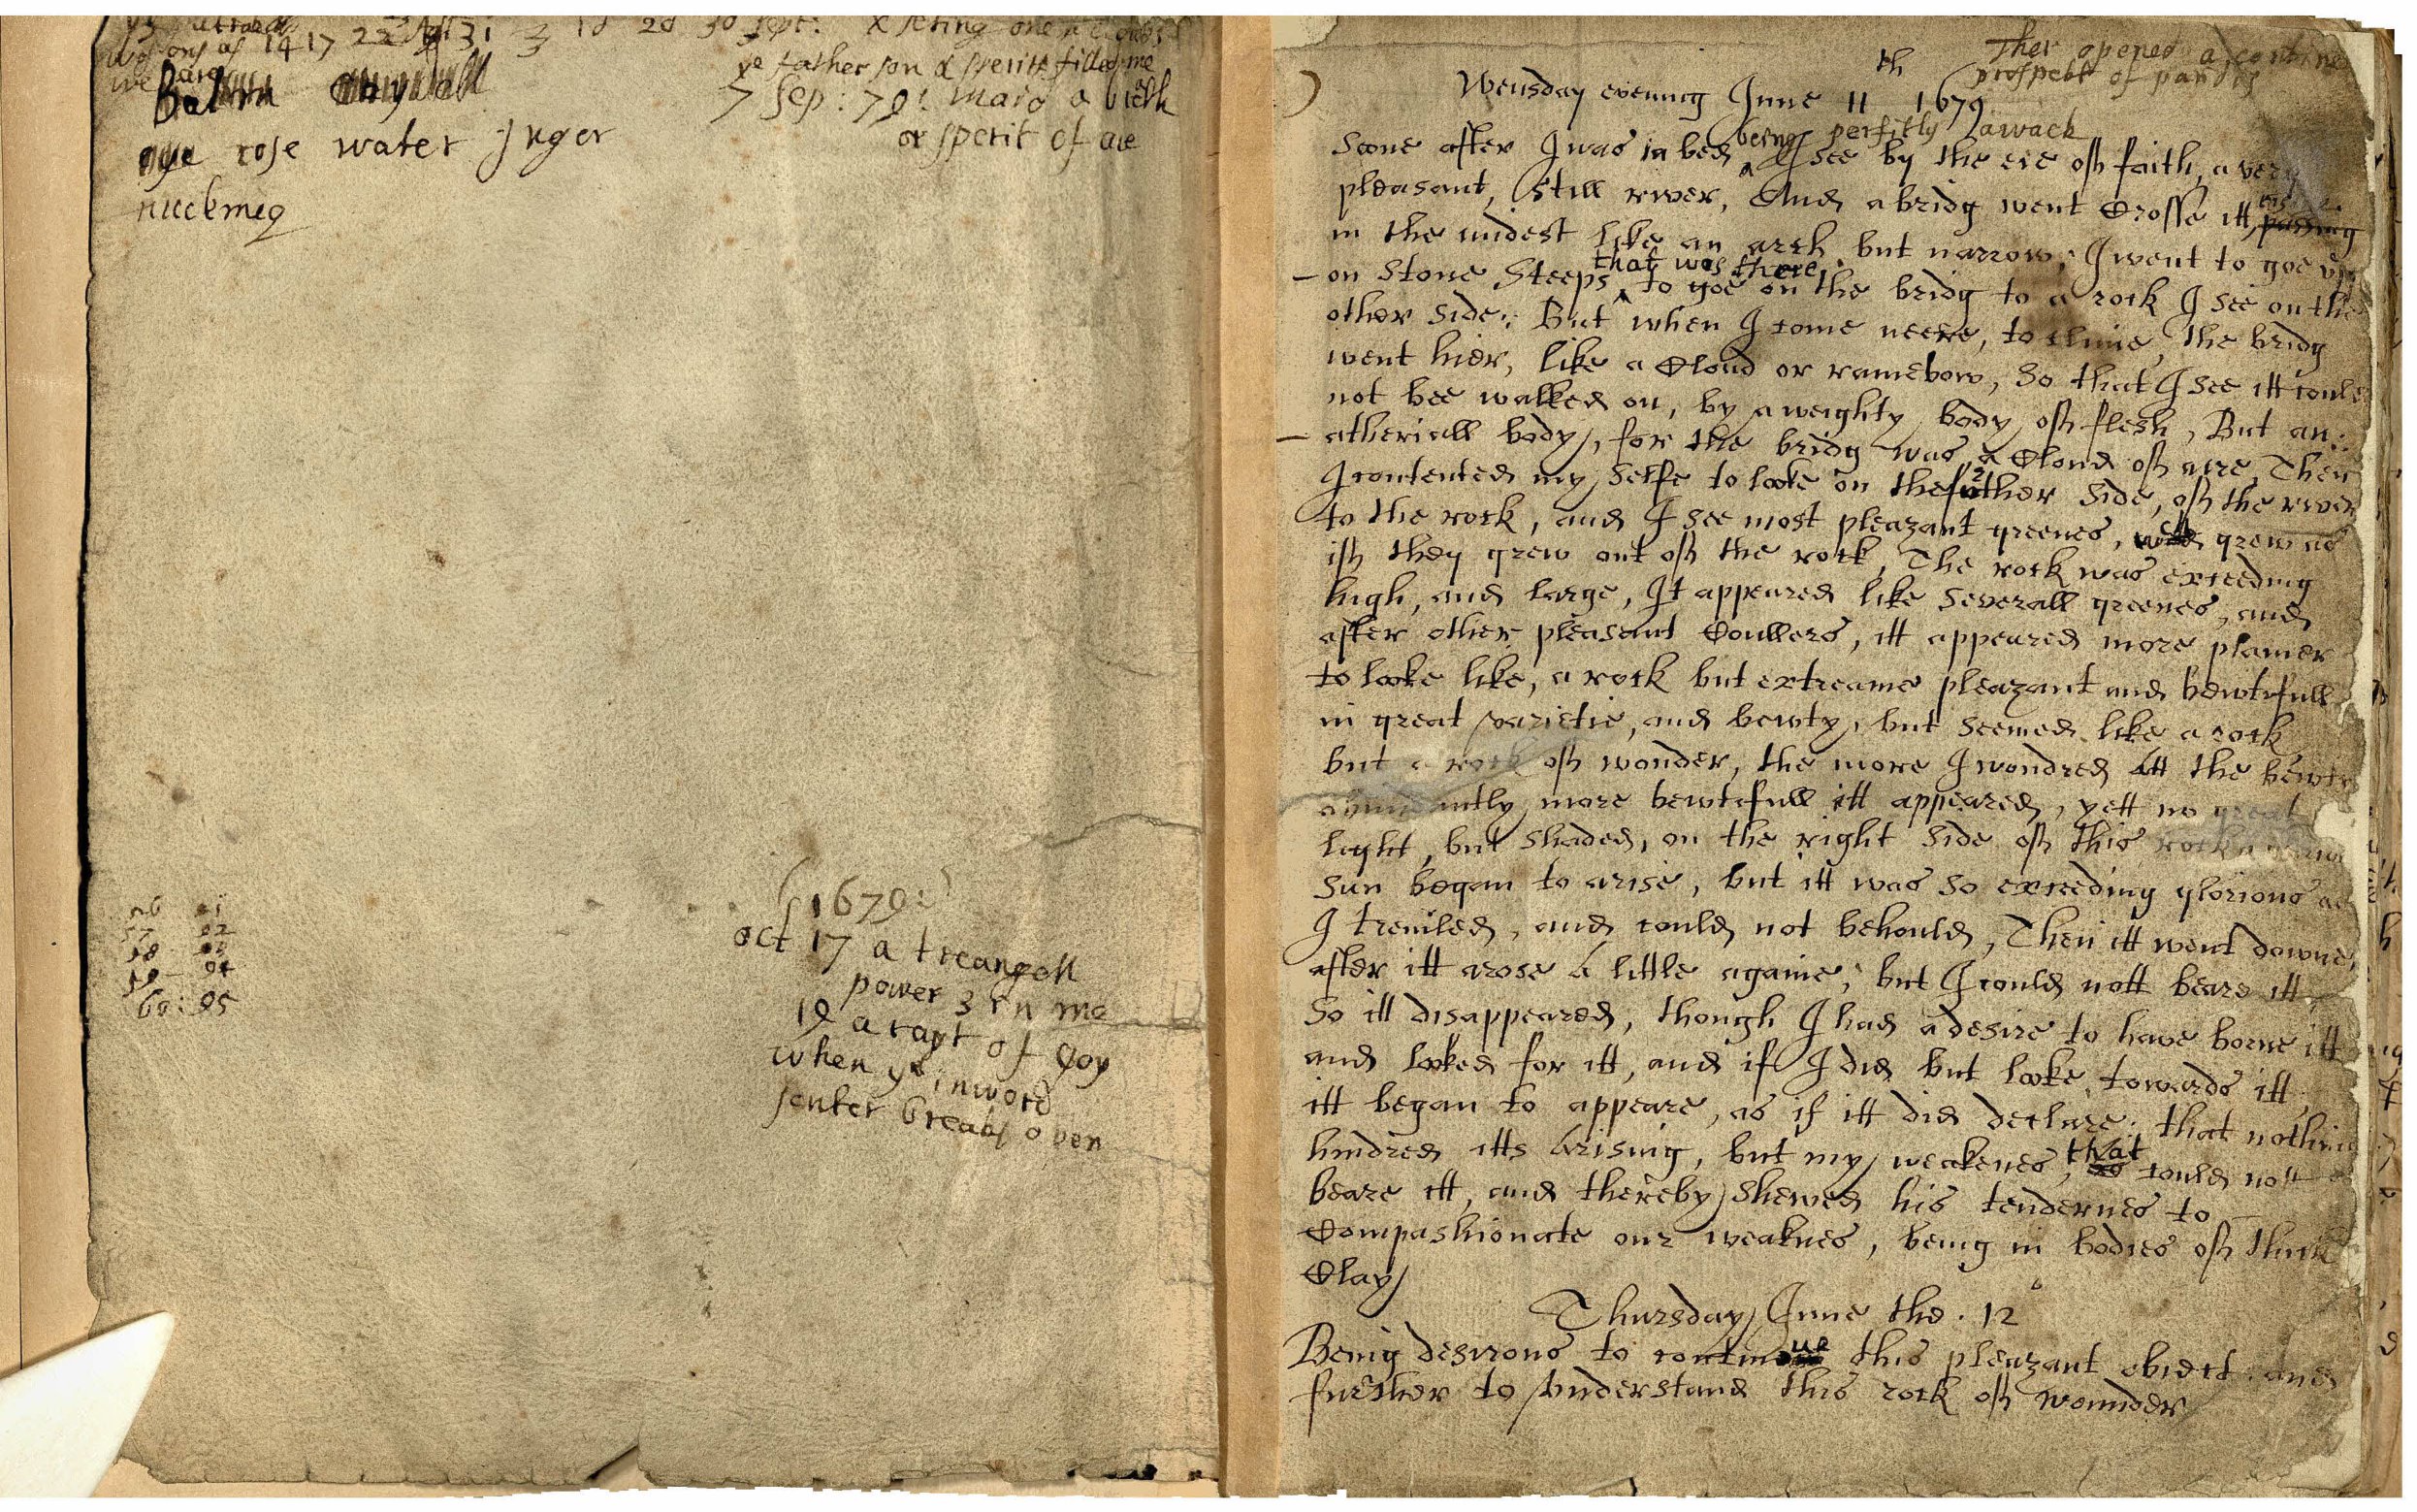 14 17 22 31 3 30 sept:
ye father son & speritt filled me
7 sep: 79:
Balm
or sperit of
rose water suger
nuckmeg
56 01
57 02
58 03
59 04
60: 05
(1679:)
oct 17 a treangell
power 3 in me
19 a rapt of Joy
when ye inword
senter breaks open
Ther opened a
prospect of
Wensday evening June 11th 1679
being perfitly awack
Soone after I was in bed I see by the eie off faith, a very
pleasant, Still river, And a bridg went Crosse itt, passing
in the midest like an arch but narrow; I went to goe up
that was there
on Stone Steeps to goe on the bridg to a rock I see on the
other Side; But when I come neere, to clime, the bridg
went hier, like a Cloud or rainebow, So that I see itt could
not bee walked on, by a weighty body off flesh, But an:
atheriall body, for the bridg was a Cloud off aire, Then
I contented my Selfe to looke on the further Side, off the river
to the rock, and I see most pleazant greenes, grew as
iff they grew out off the rock, The rock was exceeding
high, and large, It appeared like Severall greenes, and
after other pleasant Coullers, itt appeared more plainer
to looke like, a rock but extreame pleazant and bewtifull
in great varietie, and bewty, but Seemed like a rock
but a rock off wonder, the more I wondred att the bewty
abundantly more bewtifull itt appeared, yett no great
light, but Shaded, on the right Side off this rock
Sun began to arise, but itt was So exceeding glorious as
I trembled, and could not behould, Then itt went downe,
after itt arose A little againe; but I could nott beare itt,
So itt disappeared, though I had a desire to have borne itt
and looked for itt, and iff I did but looke towards itt
itt began to appeare, as if itt did declare: that nothing
hindred itts Arising, but my weakenes, that could nott
beare itt, and thereby Shewed his tendernes to
Compashionate our weaknes, being in bodies off thick
Clay
Thursday June the . 12
Being desirous to continue this pleazant obiect and
further to understand this rock off wounder